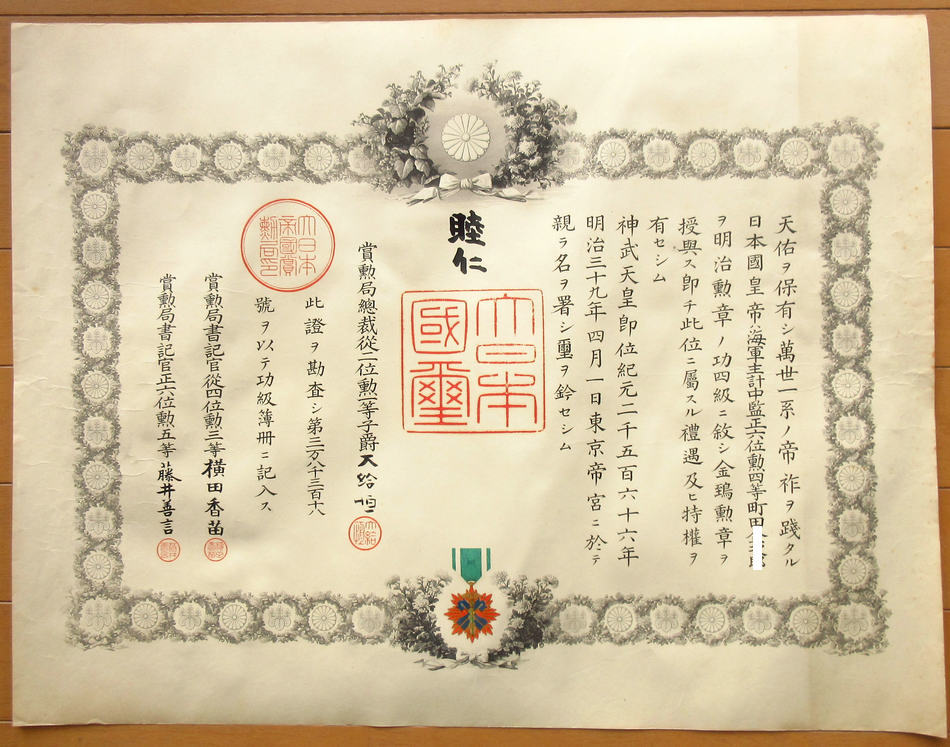 天佑ヲ保有シ萬世一系ノ帝祚ヲ踐タル
日本國皇帝ハ海軍主計中監正六位勲四等町田
ヲ明治勲章ノ功四級ニ敘シ金鵄勲章ヲ
授與ス卽チ此位ニ屬スル禮遇及ヒ特權ヲ
有セシム
神武天皇卽位紀元二千五百六十六年
明治三十九年四月一日東京帝宮ニ於テ
親ラ名ヲ署シ璽ヲ鈐セシム
睦仁
大日本國璽
賞勲局總裁從二位勲一等子爵大給恒
此證ヲ勘査シ第三万八千三百十八
號ヲ以テ功級簿册ニ記入ス
大日本帝國賞勲局印
賞勲局書記官從四位勲三等橫田香苗
賞勲局書記官正六位勲五等藤井善言